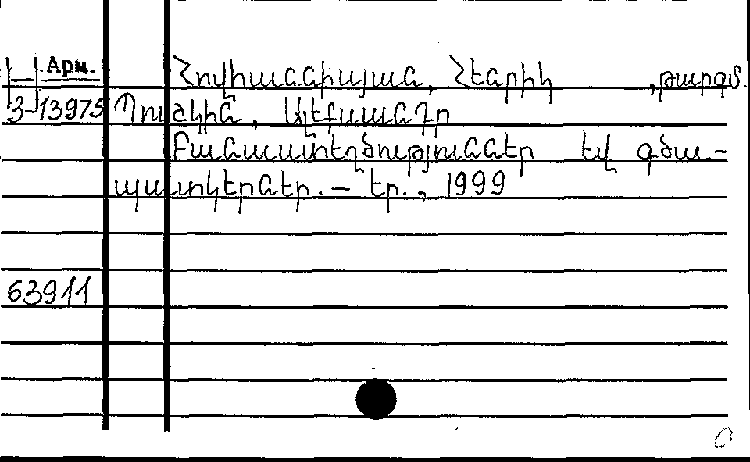 Арм.
Հովհաննիսյան, Հենրիկ , թարգմ.
3-13975 Պուշկին, Ալեքսանդր
Բանաստեղծություններ եվ գծա-
պատկերներ. – Եր., 1999
63911